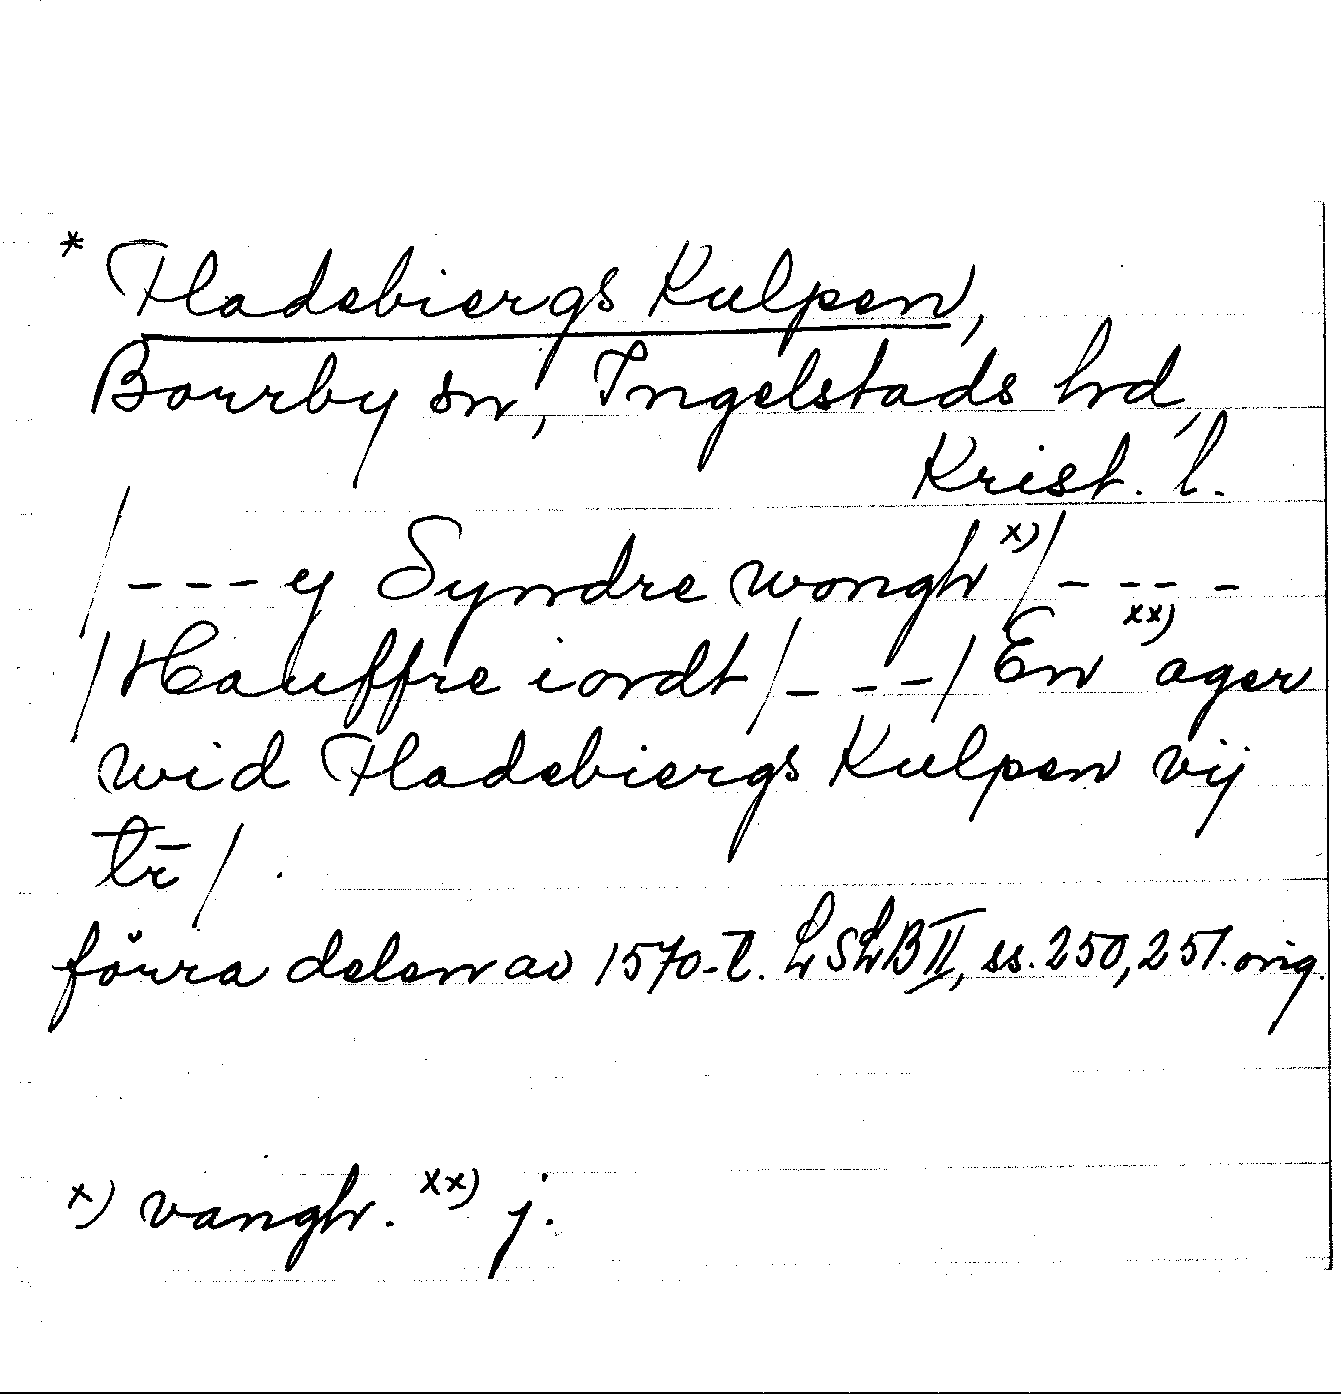 * Fladebiergs Kulpen,
Borrby sn, Ingelstads hrd,
Krist. l.
/--- ej Syndre wongh x)/----
/Hauffre iordt/---/En xx) ager
wid Fladebiergs Kulpen vij
tr̄/.
förra delen av 1570-t. LSLB II, ss. 250, 251. orig.
x) vangh. xx) j.